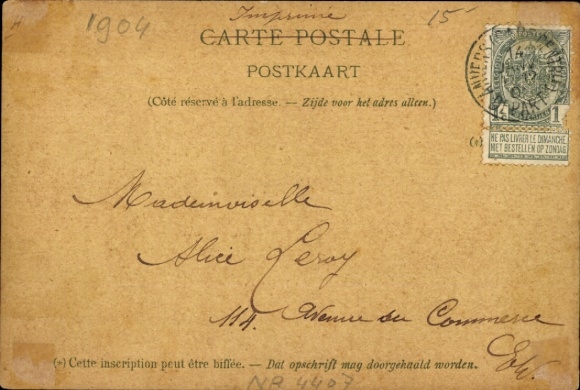 Imprimé 15
1904
CARTE POSTALE
POSTKAART
(Côté réservé à l'adresse. — Zijde voor het adres alleen.)
1
(*)
NE PAS LIVRER LE DIMANCHE
NIET BESTELLEN OP ZONDAG
Mademoiselle
Alice Leroy
114. Avenue du Commerce
E/V.
(*) Cette inscription peut être biffée. — Dit opschrift mag doorgehaald worden.
NR 4407